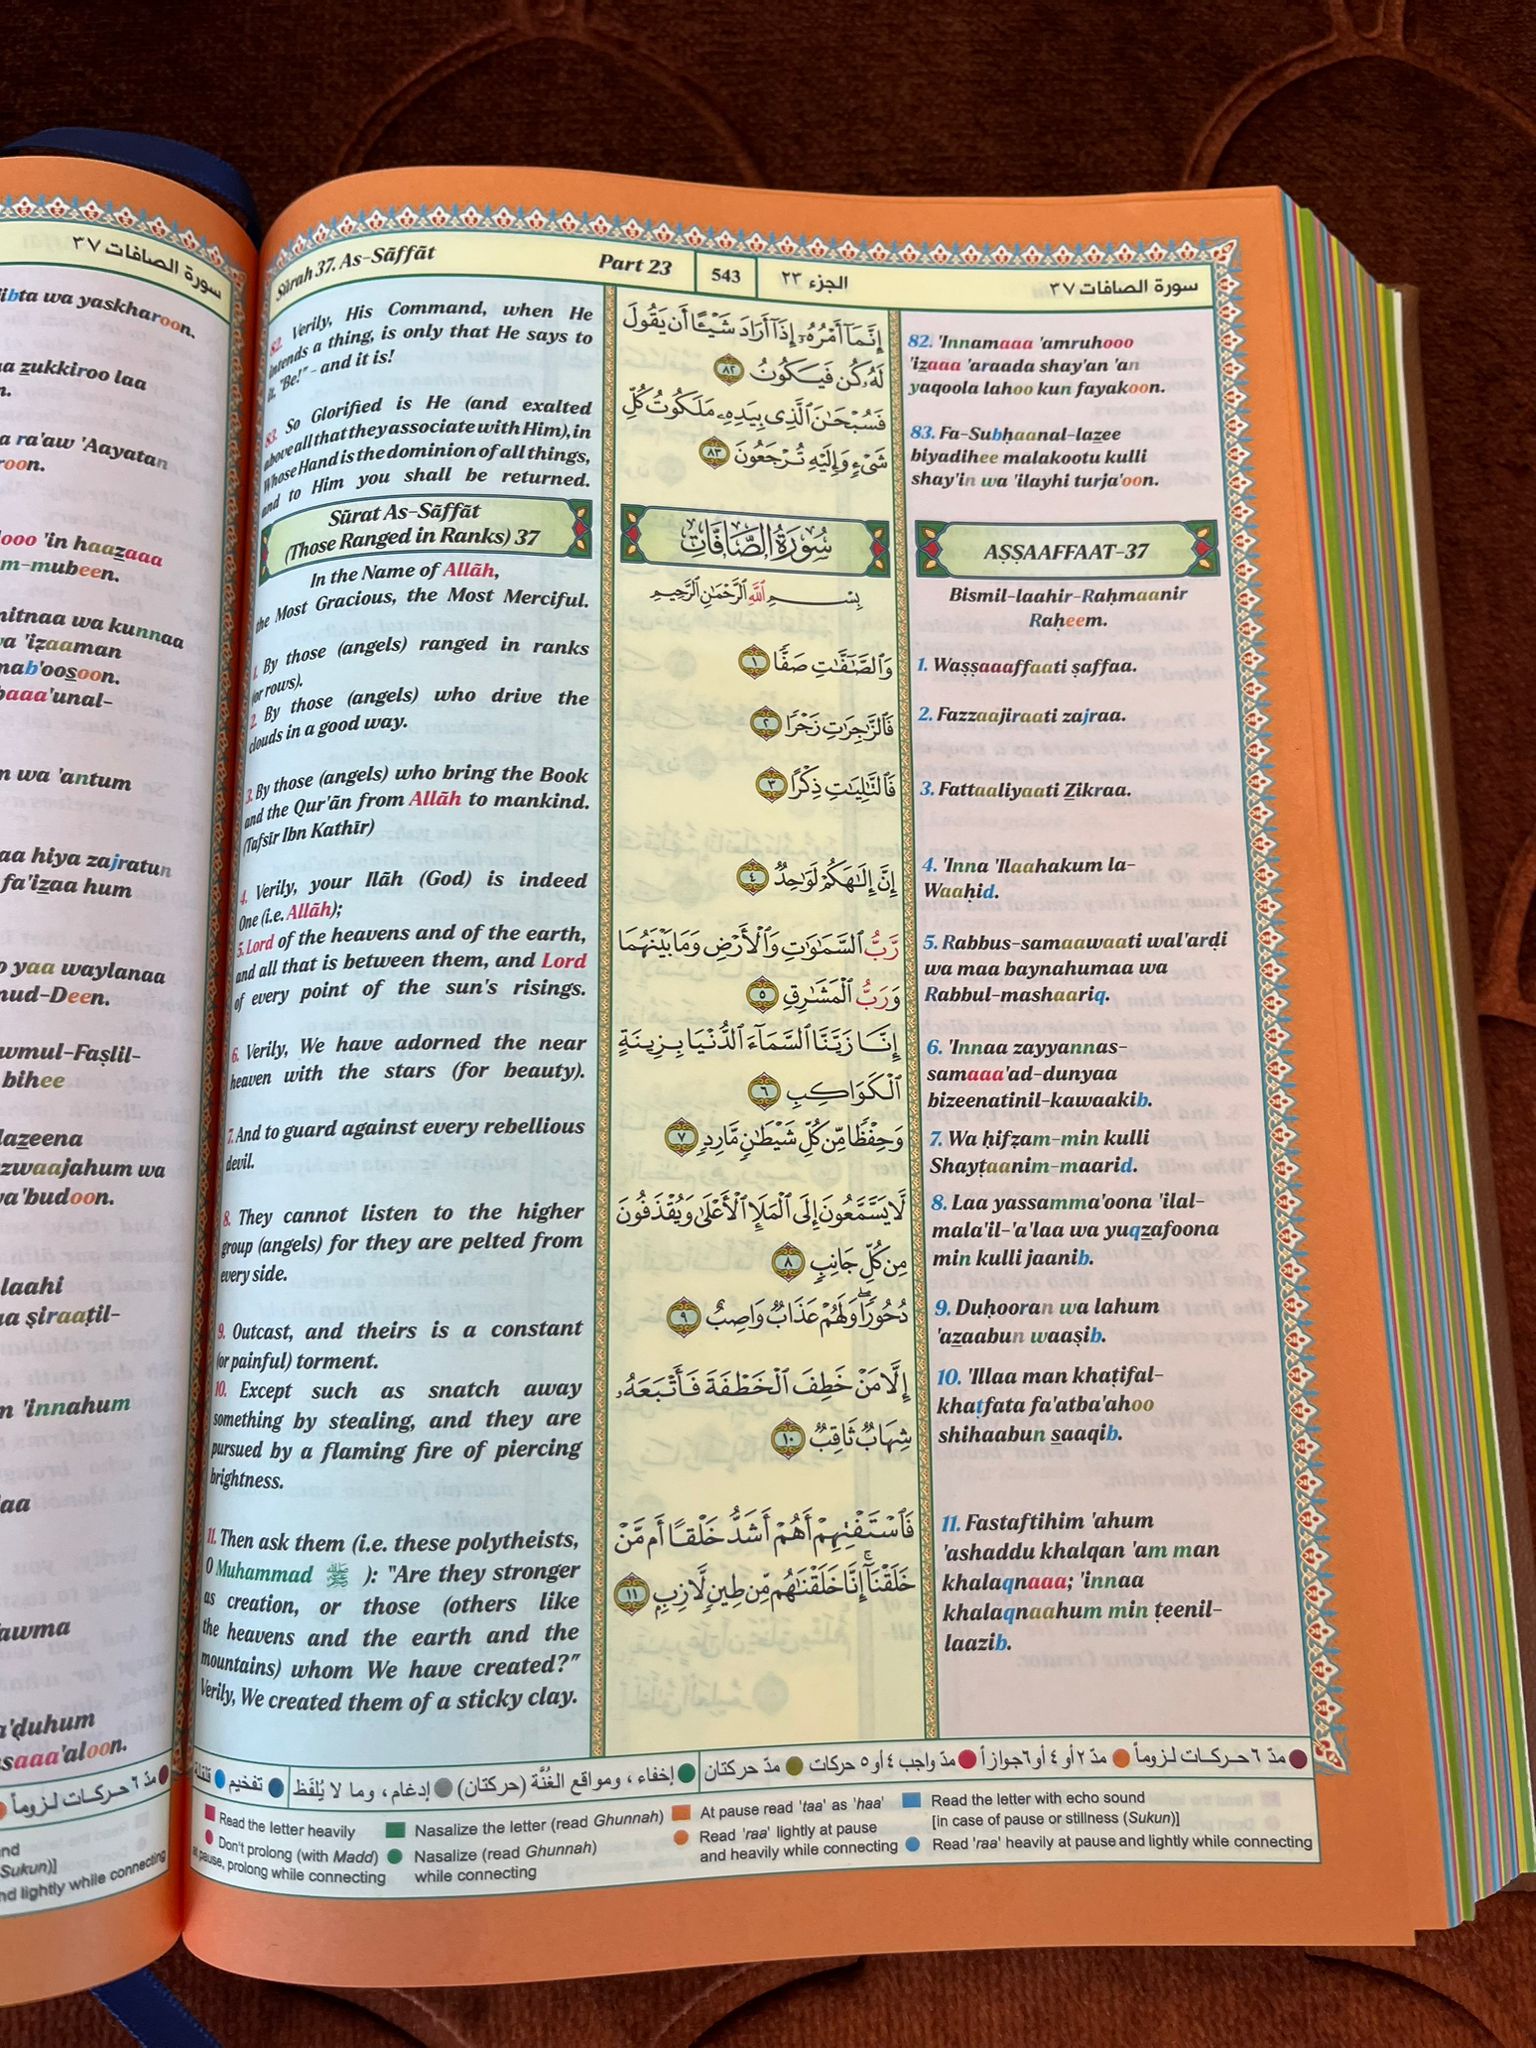 سورة الصافات ٣٧
ibta wa yaskharoon.
zukkiroo laa
ra'aw 'Aayatan
roon.
'in haazaaa
m-mubeen.
mitnaa wa kunnaa
'izaaman
mab'oosoon.
baaa'unal-
wa 'antum
hiya zajratun
fa'izaa hum
yaa waylanaa
mud-Deen.
wmul-Faṣlil-
bihee
lazeena
zwaajahum wa
ya'budoon.
laahi
ṣiraaṭil-
'innahum
a'ḍuhum
saaa'aloon.
مدّ ٦ حركات لزوماً
Sukun)]
nd lightly while connecting
Sūrah 37. As-Sāffāt
Part 23
543
الجزء ٢٣
سورة الصافات ٣٧
82. Verily, His Command, when He
intends a thing, is only that He says to
it, "Be!" - and it is!
83. So Glorified is He (and exalted
above all that they associate with Him), in
Whose Hand is the dominion of all things,
and to Him you shall be returned.
Sūrat As-Sāffāt
(Those Ranged in Ranks) 37
In the Name of Allāh,
the Most Gracious, the Most Merciful.
1. By those (angels) ranged in ranks
(or rows).
2. By those (angels) who drive the
clouds in a good way.
3. By those (angels) who bring the Book
and the Qur'ān from Allāh to mankind.
(Tafsīr Ibn Kathīr)
4. Verily, your Ilāh (God) is indeed
One (i.e. Allāh);
5. Lord of the heavens and of the earth,
and all that is between them, and Lord
of every point of the sun's risings.
6. Verily, We have adorned the near
heaven with the stars (for beauty).
7. And to guard against every rebellious
devil.
8. They cannot listen to the higher
group (angels) for they are pelted from
every side.
9. Outcast, and theirs is a constant
(or painful) torment.
10. Except such as snatch away
something by stealing, and they are
pursued by a flaming fire of piercing
brightness.
11. Then ask them (i.e. these polytheists,
O Muhammad ﷺ ): "Are they stronger
as creation, or those (others like
the heavens and the earth and the
mountains) whom We have created?"
Verily, We created them of a sticky clay.
إِنَّمَآ أَمْرُهُۥٓ إِذَآ أَرَادَ شَيْـًٔا أَن يَقُولَ
لَهُۥ كُن فَيَكُونُ ٨٢
فَسُبْحَـٰنَ ٱلَّذِى بِيَدِهِۦ مَلَكُوتُ كُلِّ
شَىْءٍ وَإِلَيْهِ تُرْجَعُونَ ٨٣
سُورَةُ الصَّافَّاتِ
بِسْمِ ٱللَّهِ ٱلرَّحْمَـٰنِ ٱلرَّحِيمِ
وَٱلصَّـٰٓفَّـٰتِ صَفًّا ١
فَٱلزَّٰجِرَٰتِ زَجْرًا ٢
فَٱلتَّـٰلِيَـٰتِ ذِكْرًا ٣
إِنَّ إِلَـٰهَكُمْ لَوَٰحِدٌ ٤
رَّبُّ ٱلسَّمَـٰوَٰتِ وَٱلْأَرْضِ وَمَا بَيْنَهُمَا
وَرَبُّ ٱلْمَشَـٰرِقِ ٥
إِنَّا زَيَّنَّا ٱلسَّمَآءَ ٱلدُّنْيَا بِزِينَةٍ
ٱلْكَوَاكِبِ ٦
وَحِفْظًا مِّن كُلِّ شَيْطَـٰنٍ مَّارِدٍ ٧
لَّا يَسَّمَّعُونَ إِلَى ٱلْمَلَإِ ٱلْأَعْلَىٰ وَيُقْذَفُونَ
مِن كُلِّ جَانِبٍ ٨
دُحُورًا ۖ وَلَهُمْ عَذَابٌ وَاصِبٌ ٩
إِلَّا مَنْ خَطِفَ ٱلْخَطْفَةَ فَأَتْبَعَهُۥ
شِهَابٌ ثَاقِبٌ ١٠
فَٱسْتَفْتِهِمْ أَهُمْ أَشَدُّ خَلْقًا أَم مَّنْ
خَلَقْنَآ ۚ إِنَّا خَلَقْنَـٰهُم مِّن طِينٍ لَّازِبٍ ١١
82. 'Innamaaa 'amruhooo
'izaaa 'araada shay'an 'an
yaqoola lahoo kun fayakoon.
83. Fa-Subḥaanal-lazee
biyadihee malakootu kulli
shay'in wa 'ilayhi turja'oon.
AṢṢAAFFAAT-37
Bismil-laahir-Raḥmaanir
Raḥeem.
1. Waṣṣaaaffaati ṣaffaa.
2. Fazzaajiraati zajraa.
3. Fattaaliyaati Zikraa.
4. 'Inna 'Ilaahakum la-
Waaḥid.
5. Rabbus-samaawaati wal'arḍi
wa maa baynahumaa wa
Rabbul-mashaariq.
6. 'Innaa zayyannas-
samaaa'ad-dunyaa
bizeenatinil-kawaakib.
7. Wa ḥifẓam-min kulli
Shayṭaanim-maarid.
8. Laa yassamma'oona 'ilal-
mala'il-'a'laa wa yuqzafoona
min kulli jaanib.
9. Duḥooran wa lahum
'azaabun waaṣib.
10. 'Illaa man khaṭifal-
khaṭfata fa'atba'ahoo
shihaabun saaqib.
11. Fastaftihim 'ahum
'ashaddu khalqan 'am man
khalaqnaaa; 'innaa
khalaqnaahum min ṭeenil-
laazib.
مدّ ٦ حركات لزوماً مدّ ٢ أو ٤ أو ٦ جوازاً مدّ واجب ٤ أو ٥ حركات مدّ حركتان إخفاء، ومواقع الغُنَّة (حركتان) إدغام، وما لا يُلفَظ تفخيم قلقلة
Read the letter heavily
Don't prolong (with Madd)
at pause, prolong while connecting
Nasalize the letter (read Ghunnah)
Nasalize (read Ghunnah)
while connecting
At pause read 'taa' as 'haa'
Read 'raa' lightly at pause
and heavily while connecting
Read the letter with echo sound
[in case of pause or stillness (Sukun)]
Read 'raa' heavily at pause and lightly while connecting